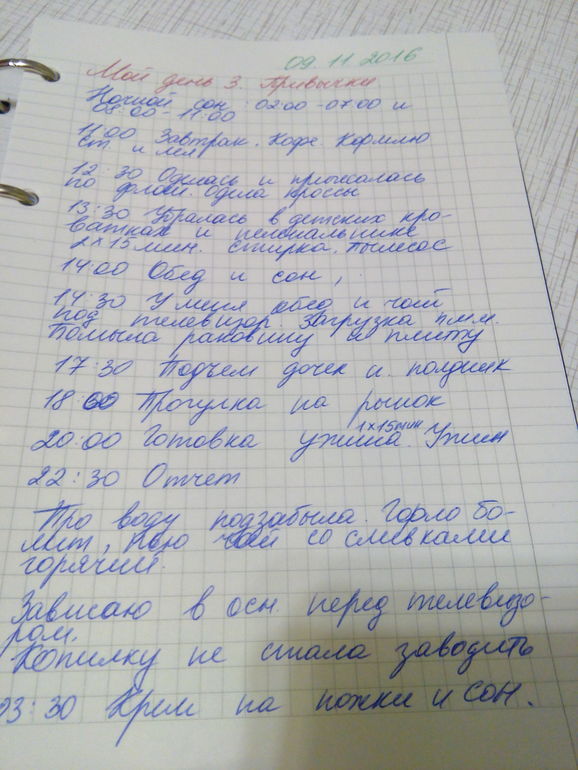 09.11 2016
Мой день 3. Привычки
Ночной сон 02:00-07:00 и
08:00-11:00
11:00 Завтрак. Кофе. Кормлю
ст. и мл.
12:30 Оделась и причесалась
по флаю. Одела кроссы
13:30 Убралась в детских кро-
ватках и пеленальнике
1×15 мин. стирка. пылесос
14:00 Обед и сон,
14:30 У меня обед и чай
под телевизор. Загрузка п.м.м.
Помыла раковину и плиту
17:30 Подъем дочек и полдник
18:00 Прогулка на рынок
20:00 Готовка ужина 1×15 мин. Ужин
22:30 Отчет
Про воду подзабыла. Горло бо-
лит, пью чай со сливками
горячий.
Зависаю в осн. перед телевизо-
ром.
Копилку не стала заводить
23:30 Крем на ножки и сон.